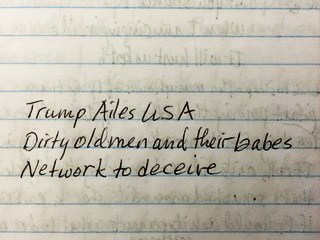 Trump Ailes USA
Dirty old men and their babes
Network to deceive